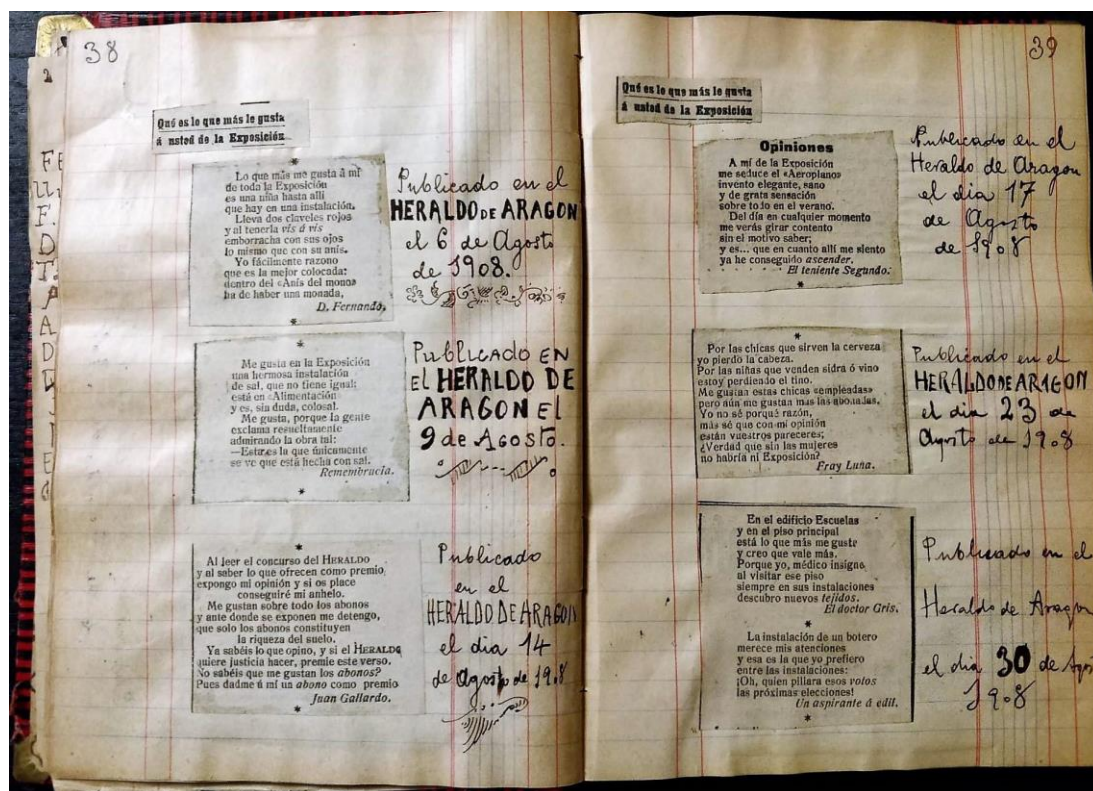 38
Qué es lo que más le gusta
á usted de la Exposición
*
Lo que más me gusta á mí
de toda la Exposición
es una niña hasta allí
que hay en una instalación.
Lleva dos claveles rojos
y al tenerla vis á vis
emborracha con sus ojos
lo mismo que con su anís.
Yo fácilmente razono
que es la mejor colocada:
dentro del «Anís del mono»
ha de haber una monada,
D. Fernando,
*
Publicado en el
HERALDO DE ARAGON
el 6 de Agosto
de 1908.
Me gusta en la Exposición
una hermosa instalación
de sal, que no tiene igual:
está en «Alimentación»
y es, sin duda, colosal.
Me gusta, porque la gente
exclama resueltamente
admirando la obra tal:
—Esta es la que únicamente
se ve que está hecha con sal.
Remembracia.
*
PUBLICADO EN
EL HERALDO DE
ARAGON EL
9 de AGOSTO.
*
Al leer el concurso del HERALDO
y al saber lo que ofrecen como premio,
expongo mi opinión y si os place
conseguiré mi anhelo.
Me gustan sobre todo los abonos
y ante donde se exponen me detengo,
que solo los abonos constituyen
la riqueza del suelo.
Ya sabéis lo que opino, y si el HERALDO
quiere justicia hacer, premie este verso.
No sabéis que me gustan los abonos?
Pues dadme á mí un abono como premio
Juan Gallardo.
*
Publicado
en el
HERALDO DE ARAGON
el dia 14
de Agosto de 1908
39
Qué es lo que más le gusta
á usted de la Exposición
Opiniones
A mí de la Exposición
me seduce el «Aeroplano»
invento elegante, sano
y de grata sensación
sobre todo en el verano.
Del día en cualquier momento
me verás girar contento
sin el motivo saber;
y es... que en cuanto allí me siento
ya he conseguido ascender.
El teniente Segundo.
*
Publicado en el
Heraldo de Aragon
el dia 17
de Agosto
de 1908
*
Por las chicas que sirven la cerveza
yo pierdo la cabeza.
Por las niñas que venden sidra ó vino
estoy perdiendo el tino.
Me gustan estas chicas «empleadas»
pero aún me gustan mas las abonadas.
Yo no sé porqué razón,
más sé que con mi opinión
están vuestros pareceres;
¿Verdad que sin las mujeres
no habría ni Exposición?
Fray Luna.
*
Publicado en el
HERALDO DE ARAGON
el dia 23 de
Agosto de 1908
En el edificio Escuelas
y en el piso principal
está lo que más me guste
y creo que vale más.
Porque yo, médico insigne
al visitar ese piso
siempre en sus instalaciones
descubro nuevos tejidos.
El doctor Gris.
*
La instalación de un botero
merece mis atenciones
y esa es la que yo prefiero
entre las instalaciones:
¡Oh, quien pillara esos votos
las próximas elecciones!
Un aspirante á edil.
*
Publicado en el
Heraldo de Aragon
el dia 30 de Ago
1908